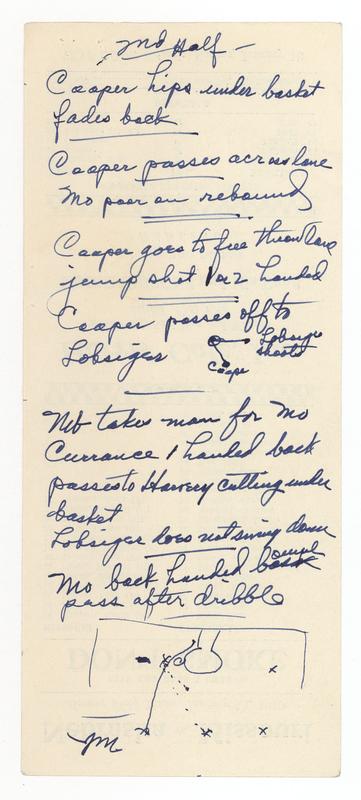 2nd Half -
Cooper hips under basket
fades back
Cooper passes across lane
Mo poor on rebounds
Cooper goes to free throw lane
jump shot 1 or 2 handed
Cooper passes off to
Lobsiger
Lobsiger
shoots
Coope
Neb takes man for Mo
Currance 1 handed back
passes to Harvey cutting under
basket
Lobsiger does not swing down
Mo back handed bounce
pass after dribble
M